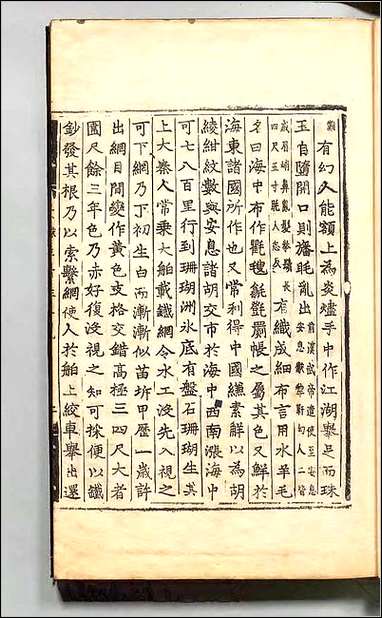 有幻人能額上為炎燼手中作江湖舉足而珠
玉自墮開口則旛毦亂出前漢武帝遣使至安息安息獻犂靬幻人二皆
蹙眉峭鼻亂髮拳鬚長四尺五寸 有織成細布言用水羊毛
名曰海中布作氍毹毾㲪罽帳之屬其色又鮮於
海東諸國所作也又常利得中國縑素解以為胡
綾紺紋數與安息諸胡交市於海中西南漲海中
可七八百里行到珊瑚洲水底有盤石珊瑚生其
上大秦人常乘大舶載鐵網令水工沒先入視之
可下網乃下初生白而漸漸似苗坼甲歷一歲許
出網目間變作黃色支格交錯高極三四尺大者
圍尺餘三年色乃赤好後沒視之知可採便以鐵
鈔發其根乃以索繫網使人於舶上絞車舉出還